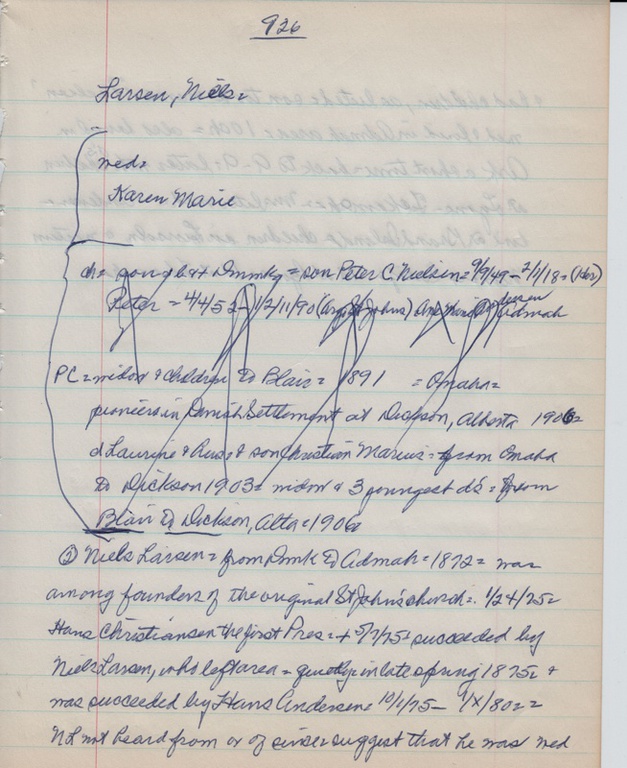 926
Larsen, Niels =
med =
Karen Marie
ch = + Dnmk = son Peter C. Nielsen = 9/9/49 - 2/1/18 =
Peter = 4/4/52 - 12/11/90 (St Johns) Admah
PC = widow & children to Blair = 1891 = Omaha =
pioneers in Danish Settlement at Dickson, Alberta 1906 =
d Laurine & & son Christian Marius = from Omaha
to Dickson 1903 = widow & 3 youngest d's = from
Blair to Dickson, Alta = 1906
Niels Larsen = from Dnmk to Admah = 1872 = was
among founders of the original St John's church = 1/24/75 =
Hans Christiansen the first Pres = + 5/7/75 = succeeded by
Niels Larsen, who left area = quietly in late spring 1875 = &
was succeeded by Hans Andersen = 10/1/75 - 1/X/80 = =
NL not heard from or of since = suggest that he was med